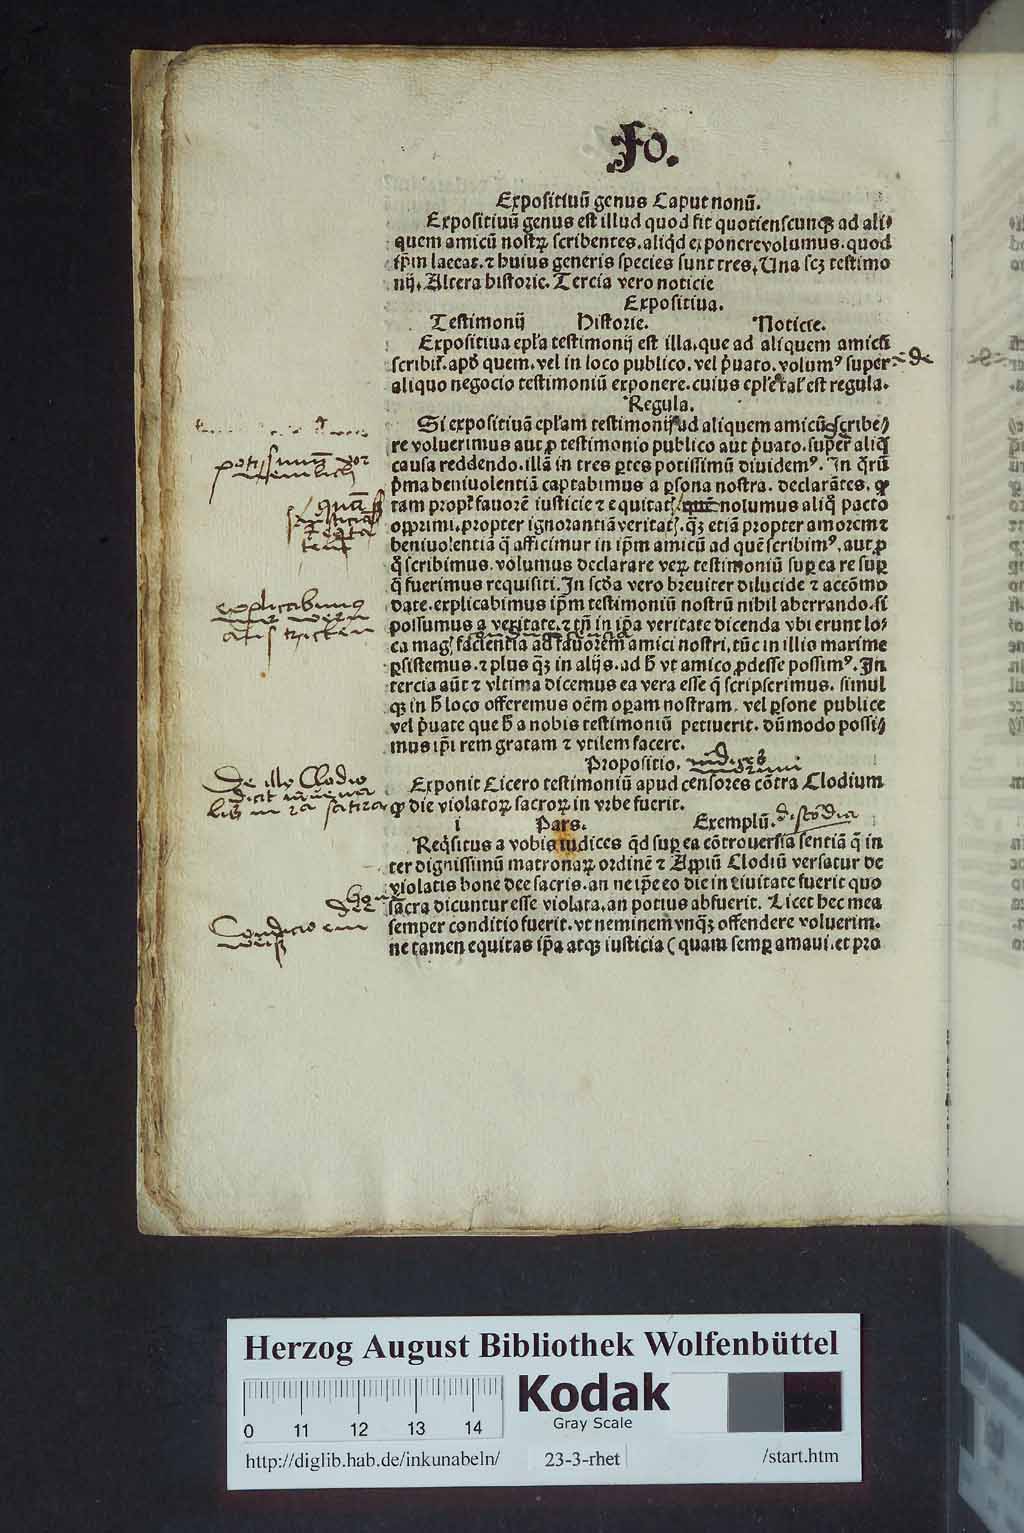 Fo.
Expositiuū genus Caput nonū.
Expositiuū genus est illud quod fit quotienscunqꝫ ad ali⸗
quem amicū nostꝝ scribentes. aliqd exponere volumus. quod
ip̄m laceat. ⁊ huius generis species sunt tres. Una scꝫ testimo
nij. Altera historie. Tercia vero noticie
Expositiua.
Testimonij Historie. Noticie.
Expositiua epl'a testimonij est illa. que ad aliquem amicū
scribit̄. apd̄ quem. vel in loco publico. vel p̄uato. volumꝰ super
aliquo negocio testimoniū exponere. cuius epl'e tal' est regula.
Regula.
Si expositiuā epl'am testimonij ad aliquem amicū scribe⸗
re voluerimus aut ꝓ testimonio publico aut p̄uato. super aliq̄
causa reddendo. illā in tres ꝑtes potissimū diuidemꝰ. In q̄rū
p̄ma beniuolentiā captabimus a ꝑsona nostra. declarātes. ꝙ
tam propt̄ fauorē iusticie ⁊ equitatꝭ quē nolumus aliq̄ pacto
opprimi. propter ignorantiā veritatꝭ. qꝫ etiā propter amorem ⁊
beniuolentiā q̄ afficimur in ip̄m amicū ad quē scribimꝰ. aut ꝓ
q̄ scribimus. volumus declarare veꝝ testimoniū suꝑ ea re suꝑ
q̄ fuerimus requisiti. In scd̄a vero breuiter dilucide ⁊ accōmo
date. explicabimus ip̄m testimoniū nostrū nihil aberrando. si
possumus a veritate. ⁊ tn̄ in ip̄a veritate dicenda vbi erunt lo⸗
ca magꝭ facientia ad fauorem amici nostri. tūc in illis maxime
ꝑsistemus. ⁊ plus qꝫ in alijs. ad h̄ vt amico ꝓdesse possimꝰ. In
tercia aūt ⁊ vltima dicemus ea vera esse q̄ scripserimus. simul
qꝫ in h̄ loco offeremus oēm oꝑam nostram. vel ꝑsone publice
vel p̄uate que h̄ a nobis testimoniū petiuerit. dūmodo possi⸗
mus ip̄i rem gratam ⁊ vtilem facere.
Propositio.
Exponit Cicero testimoniū apud censores cōtra Clodium
ꝙ die violatoꝝ sacroꝝ in vrbe fuerit.
i Pars. Exemplū.
Req̄situs a vobis iudices q̄d suꝑ ea cōtrouersia sentiā q̄ in
ter dignissimū matronaꝝ ordinē ⁊ Appiū Clodiū versatur de
violatis bone dee sacris. an ne ip̄e eo die in ciuitate fuerit quo
sacra dicuntur esse violata. an potius abfuerit. Licet hec mea
semper conditio fuerit. vt neminem vnqꝫ offendere voluerim.
ne tamen equitas ip̄a atqꝫ iusticia (quam semꝑ amaui. et pro
potissimū vor
explicabimus
De illo Clodio
Condicio ein
weiß
Herzog August Bibliothek Wolfenbüttel
Kodak
Gray Scale
0 11 12 13 14
http://diglib.hab.de/inkunabeln/ 23-3-rhet /start.htm